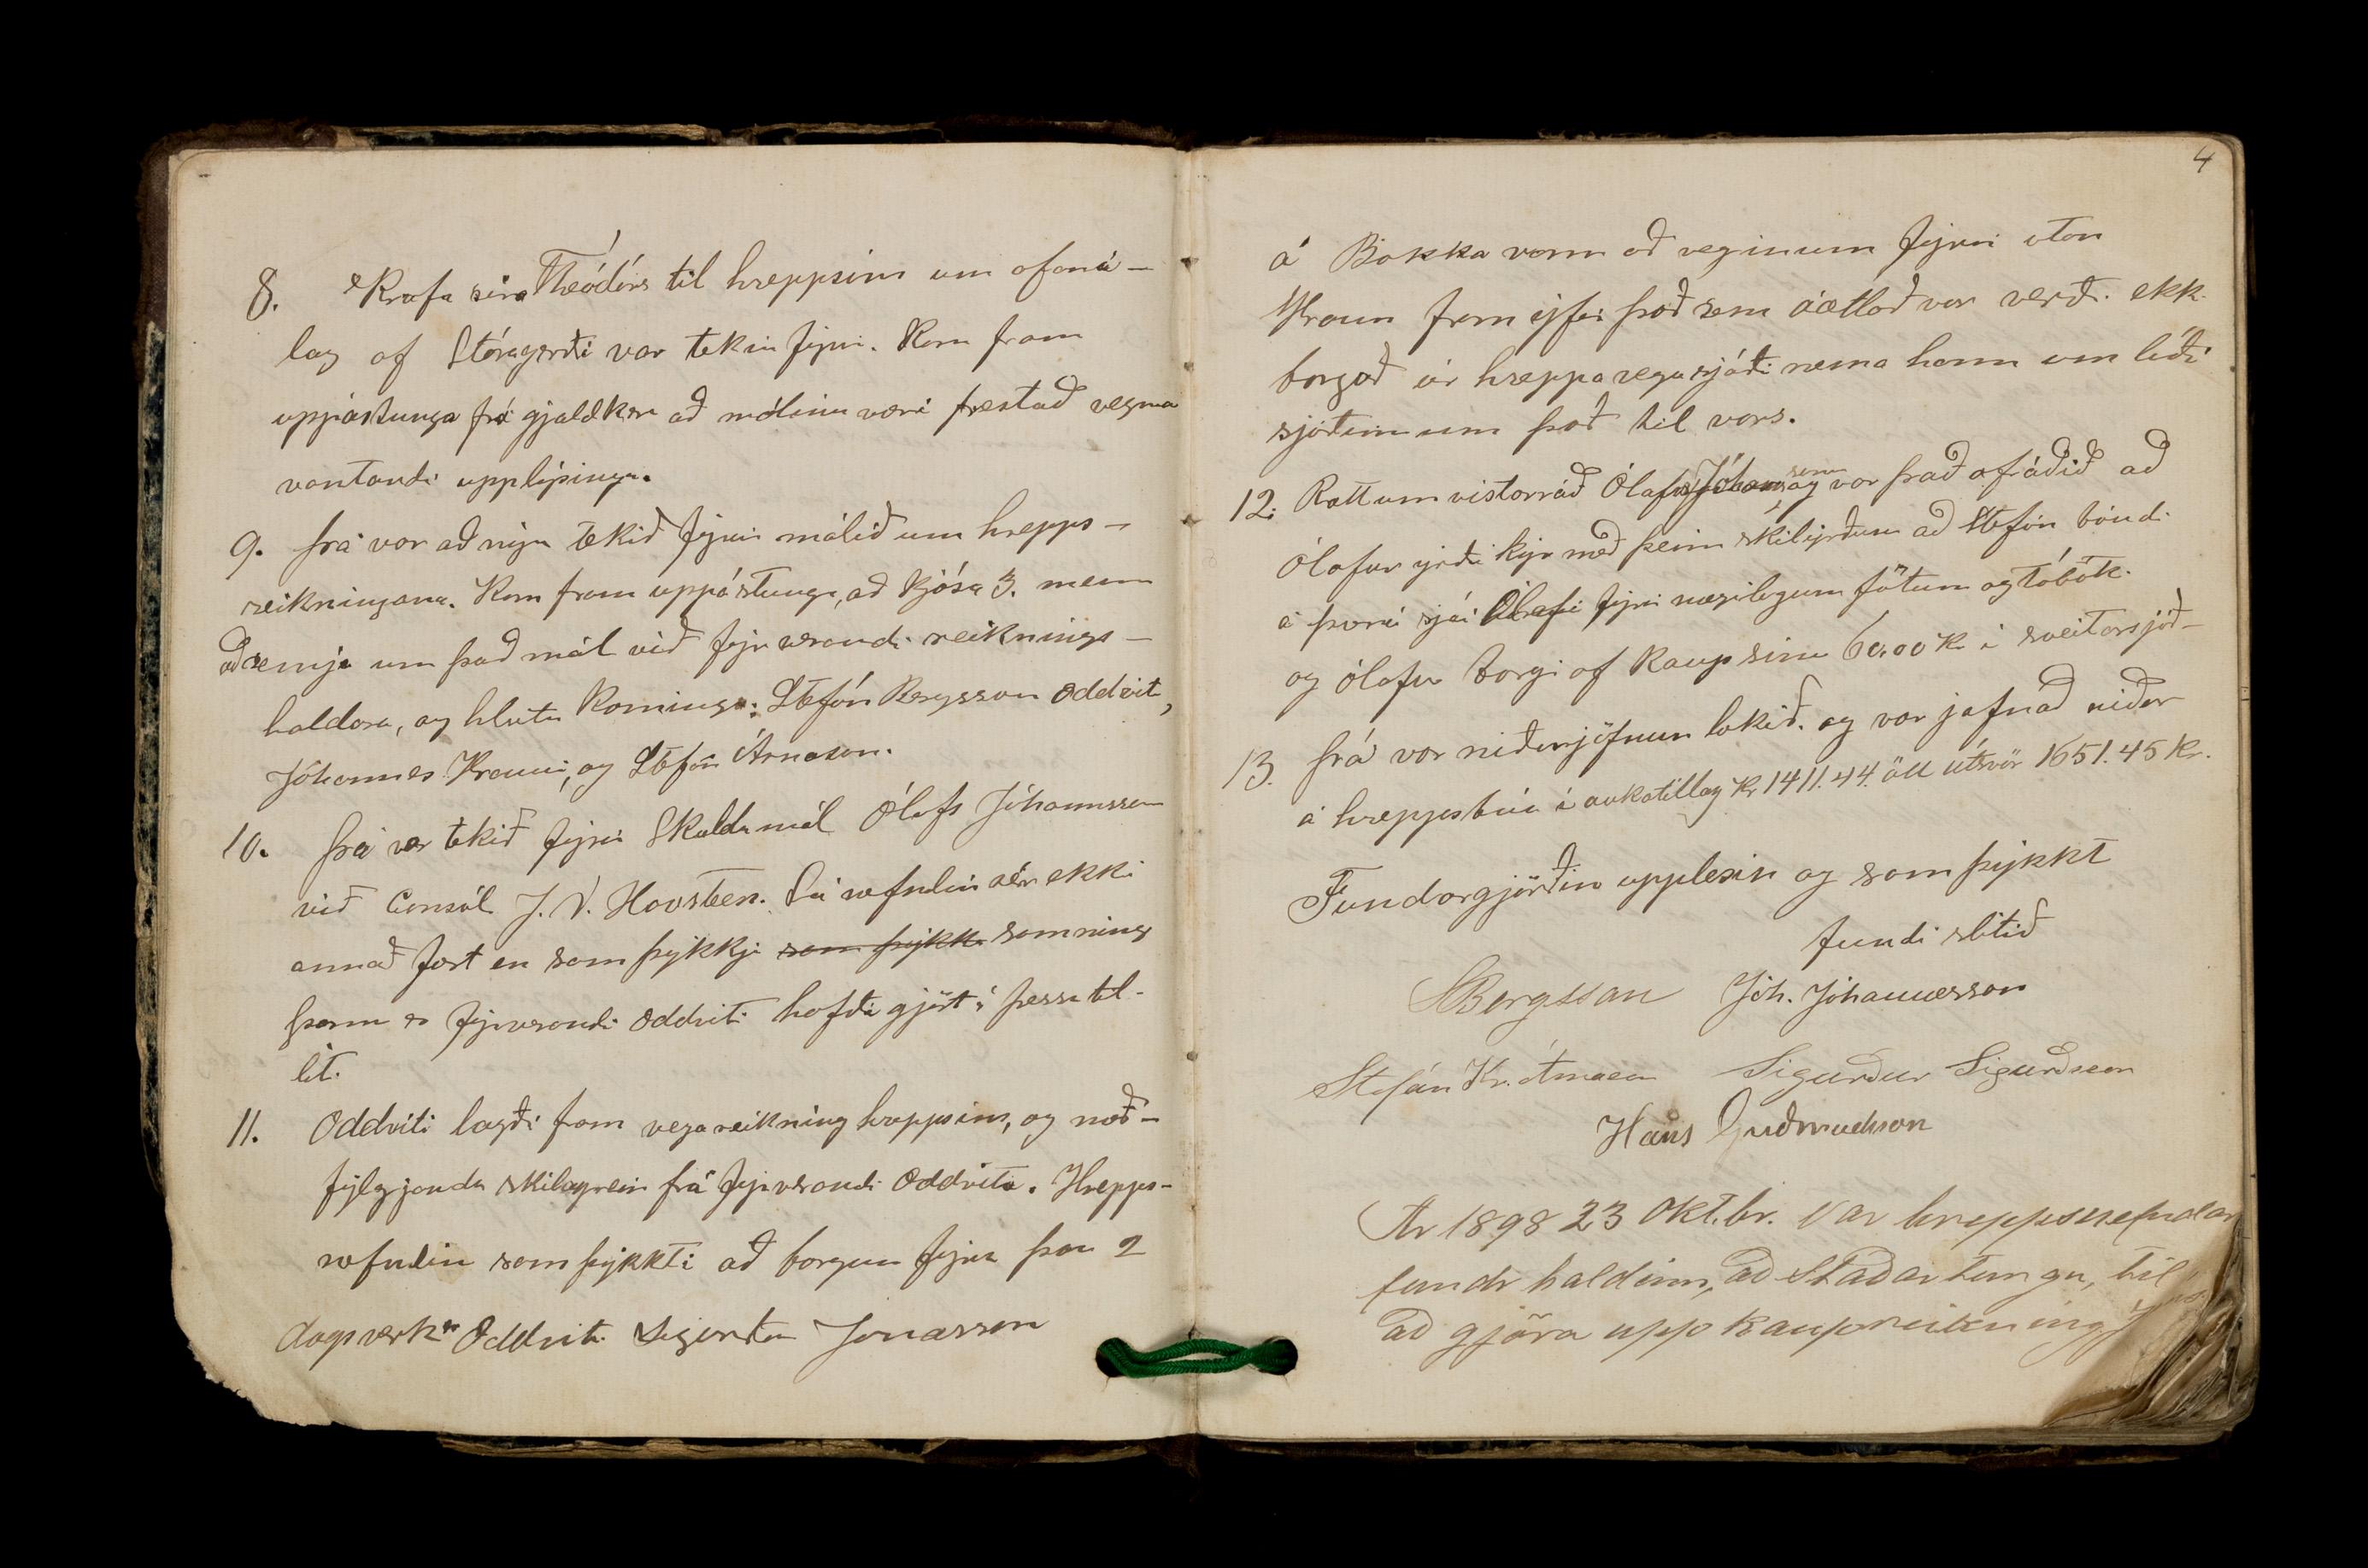 8. Krafa síra Theódórs til hreppsins um ofaná-
lag af Stóragerði var tekin fyrir. Kom fram
uppástunga frá gjaldkera að málinu væri frestað vegna
vantandi upplýsinga.
9. Þá var að nýju tekið fyrir málið um hrepps-
reikningana. Kom fram uppástunga, að kjósa 3. menn
að semja um það mál við fyrverandi reiknings-
haldara, og hlutu kosningu: Stefán Bergsson oddviti,
Jóhannes Hrauni, og Stefán Árnason.
10. Þá var tekið fyrir Skuldamál Ólafs Jóhannssonar
við Consúl J. V. Havsteen. Sá nefndin sér ekki
annað fært en samþykkja samþykkja samning
þann er fyrverandi oddviti hafði gjört í þessu til-
lit.
11. Oddviti lagði fram vegareikning hreppsins, og með-
fylgjandi skilagrein frá fyrverandi oddvita. Hrepps-
nefndin samþykkti að borgun fyrir þau 2
dagsverk er Oddviti Sigurður Jónasson
4
á Bakka vann að veginum fyrir utan
Hraun fram yfir það sem áætlað var verði ekki
borgað úr hreppavegasjóði nema hann um líði
sjóðinn um það til vors.
12. Rætt um vistarráð Ólafs Jóhannssonar og var það afráðið að
Ólafur yrði kyr með þeim skilyrðum að Stefán bóndi
á Þverá sjái Ólafi fyrir nægilegum fötum og tóbaki
og Ólafur borgi af kaupi sínu 60.00 K. í sveitarsjóð-
13. Þá var niðurjöfnun lokið. og var jafnað niður
á hreppsbúa í aukatillag Kr 1411.44. öll útsvör 1651.45 Kr.
Fundargjörðin upplesin og samþykkt
fundi slitið
SBergsson Jóh. Jóhannesson
Stefán Kr. Árnason Sigurður Sigurðsson
Hans Guðmundsson
Ár 1898 23 Oktbr. Var hreppsnefndar
fundr haldinn, að Staðartungu, til
að gjöra upp kaupreikning